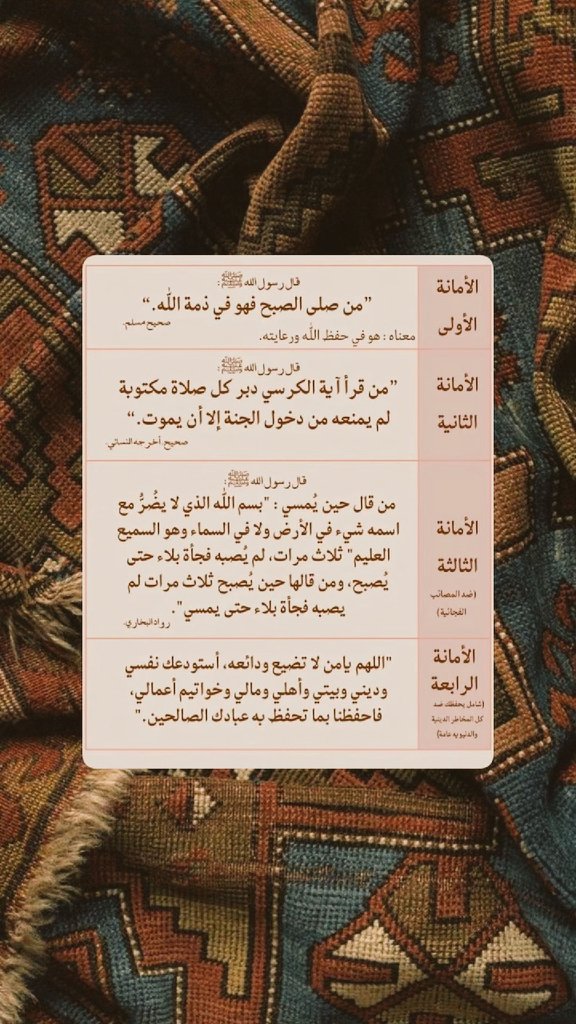 الأمانة
الأولى
قال رسول الله ﷺ :
”من صلى الصبح فهو في ذمة الله.“
صحيح مسلم.
معناه : هو في حفظ الله ورعايته.
الأمانة
الثانية
قال رسول الله ﷺ :
”من قرأ آية الكرسي دبر كل صلاة مكتوبة
لم يمنعه من دخول الجنة إلا أن يموت.“
صحيح، أخرجه النسائي.
الأمانة
الثالثة
(ضد المصائب
الفجائية)
قال رسول الله ﷺ :
من قال حين يُمسي : "بسم الله الذي لا يضُرُّ مع
اسمه شيء في الأرض ولا في السماء وهو السميع
العليم" ثلاث مرات، لم يُصبه فجأة بلاء حتى
يُصبح، ومن قالها حين يُصبح ثلاث مرات لم
يصبه فجأة بلاء حتى يمسي".
رواه البخاري.
الأمانة
الرابعة
(شامل يحفظك ضد
كل المخاطر الدينية
والدنيويه عامة)
"اللهم يامن لا تضيع ودائعه، أستودعك نفسي
وديني وبيتي وأهلي ومالي وخواتيم أعمالي،
فاحفظنا بما تحفظ به عبادك الصالحين."